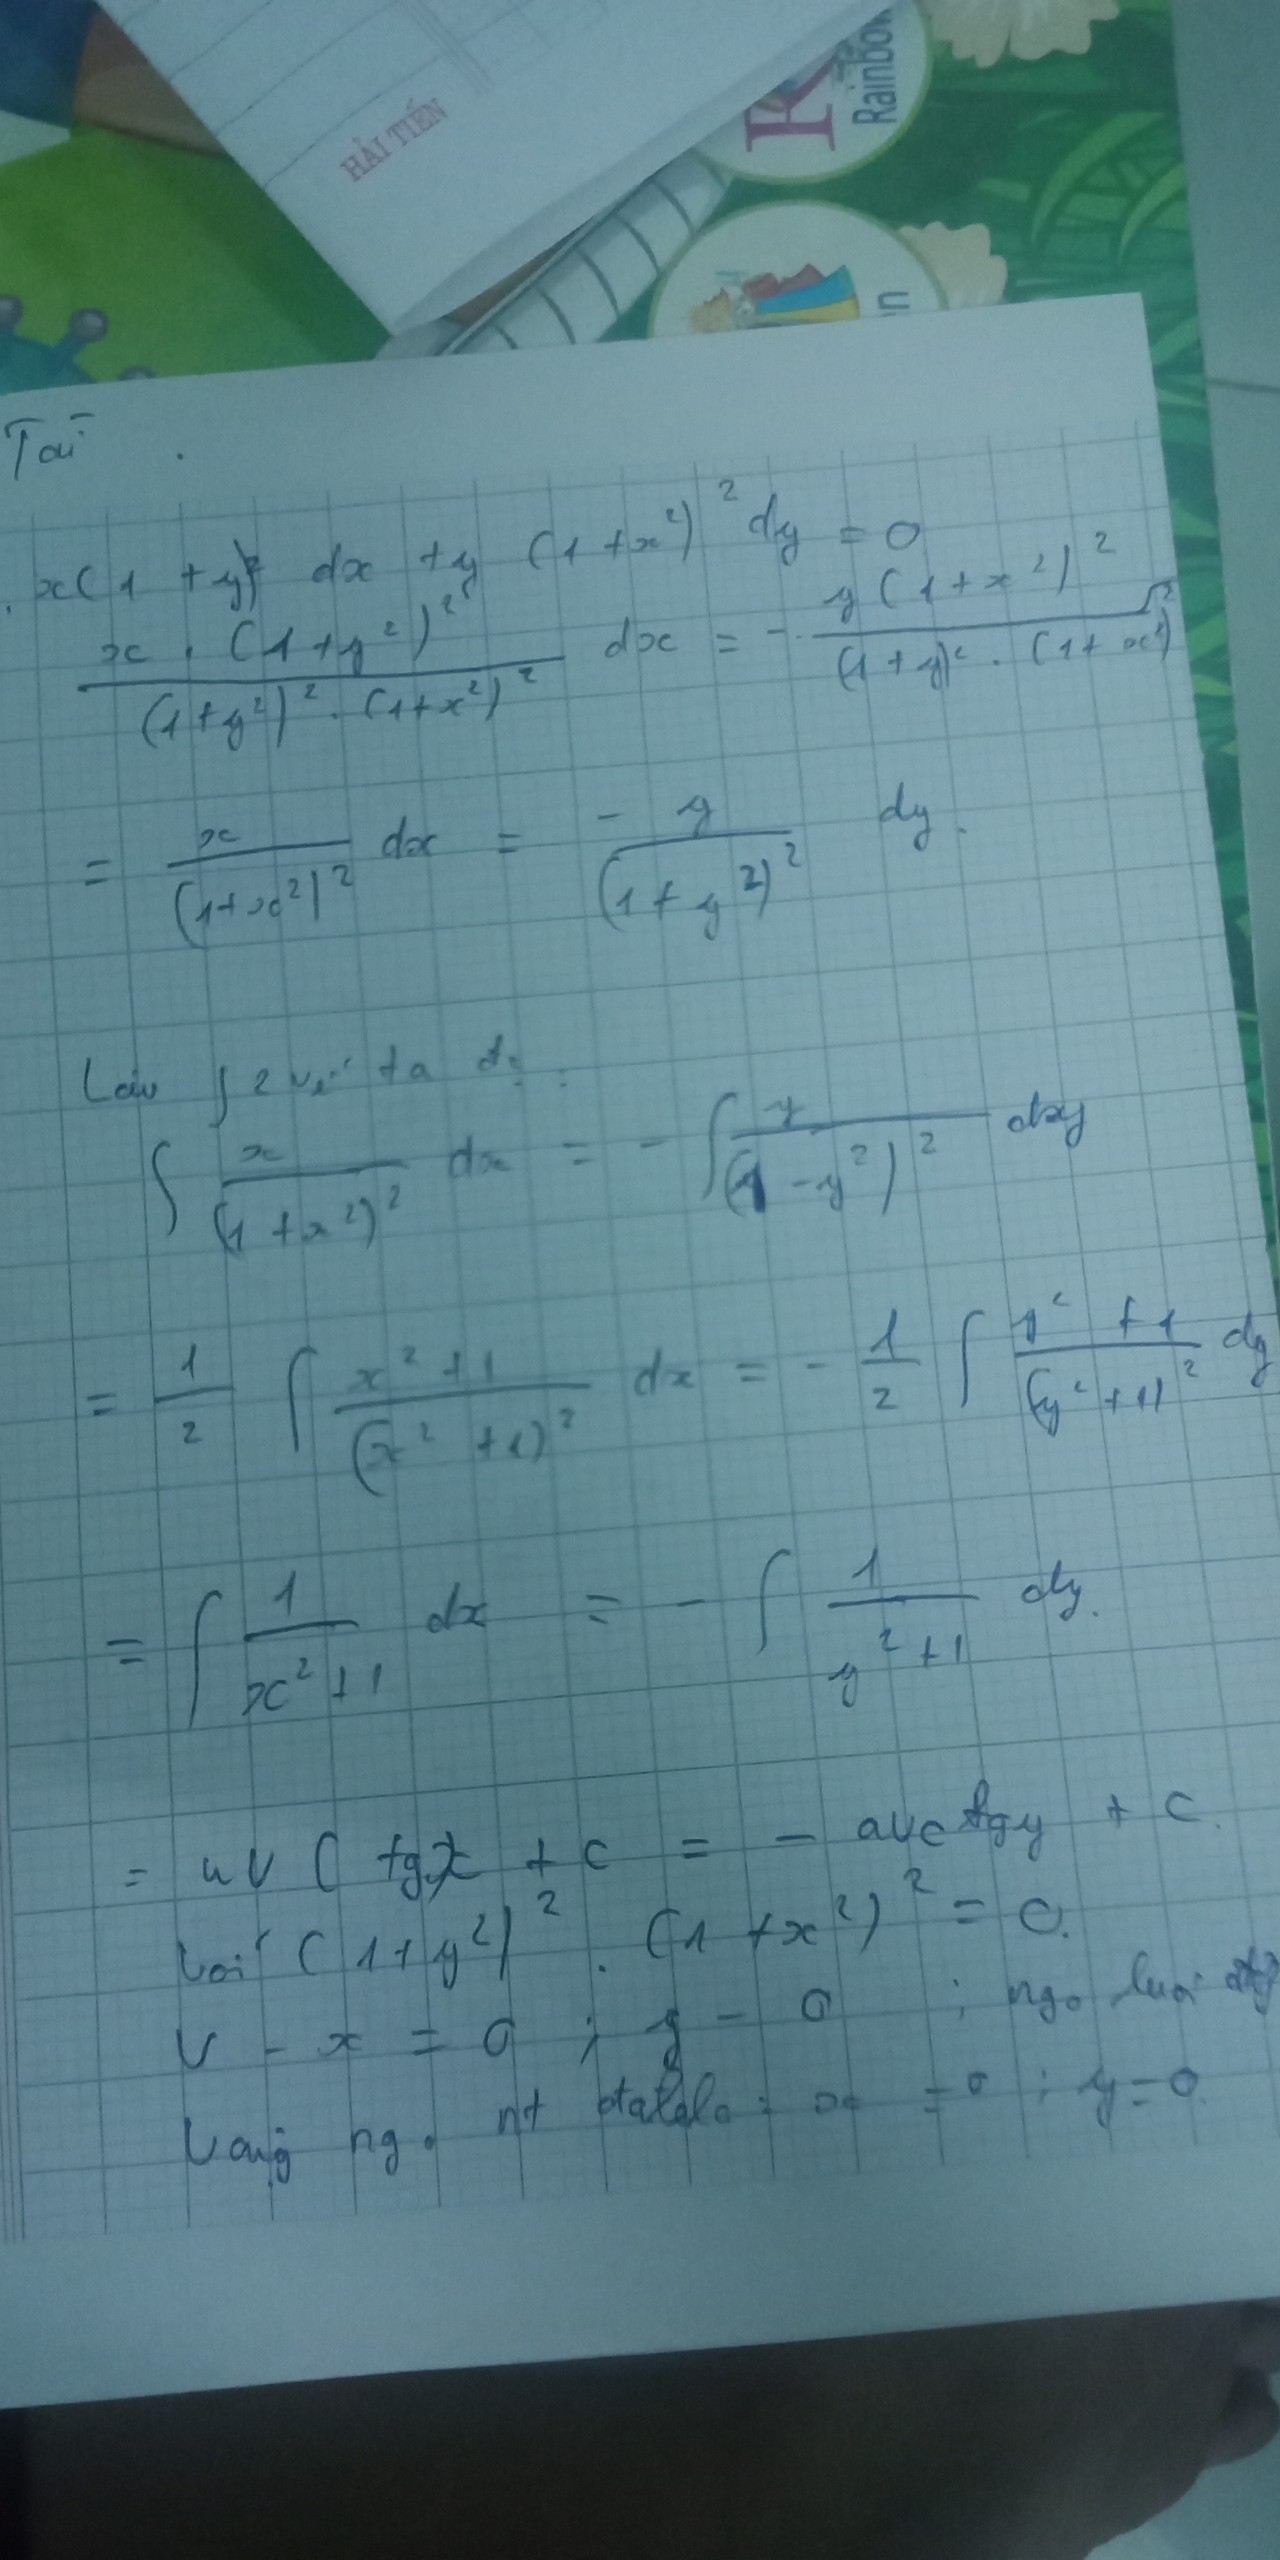 HẢI TIẾN
Rainbow
n
Tai
x(1 + y)² dx + y (1 + x²)² dy = 0
x . (1 + y²)² / (1 + y²)² . (1 + x²)² dx = - y (1 + x²)² / (1 + y)² . (1 + x²)²
= x / (1 + x²)² dx = - y / (1 + y²)² dy.
∫ 2 ta
∫ x / (1 + x²)² dx = - ∫ y / (1 - y²)² dy
= 1/2 ∫ x² + 1 / (x² + 1)² dx = - 1/2 ∫ y² + 1 / (y² + 1)² dy
= ∫ 1 / x² + 1 dx = - ∫ 1 / y² + 1 dy.
= tgx + c = - arctgy + c.
Với (1 + y²)² . (1 + x²)² = 0.
V - x = 0 ; y - 0 ; ng.
ng. nt : x = 0 ; y = 0